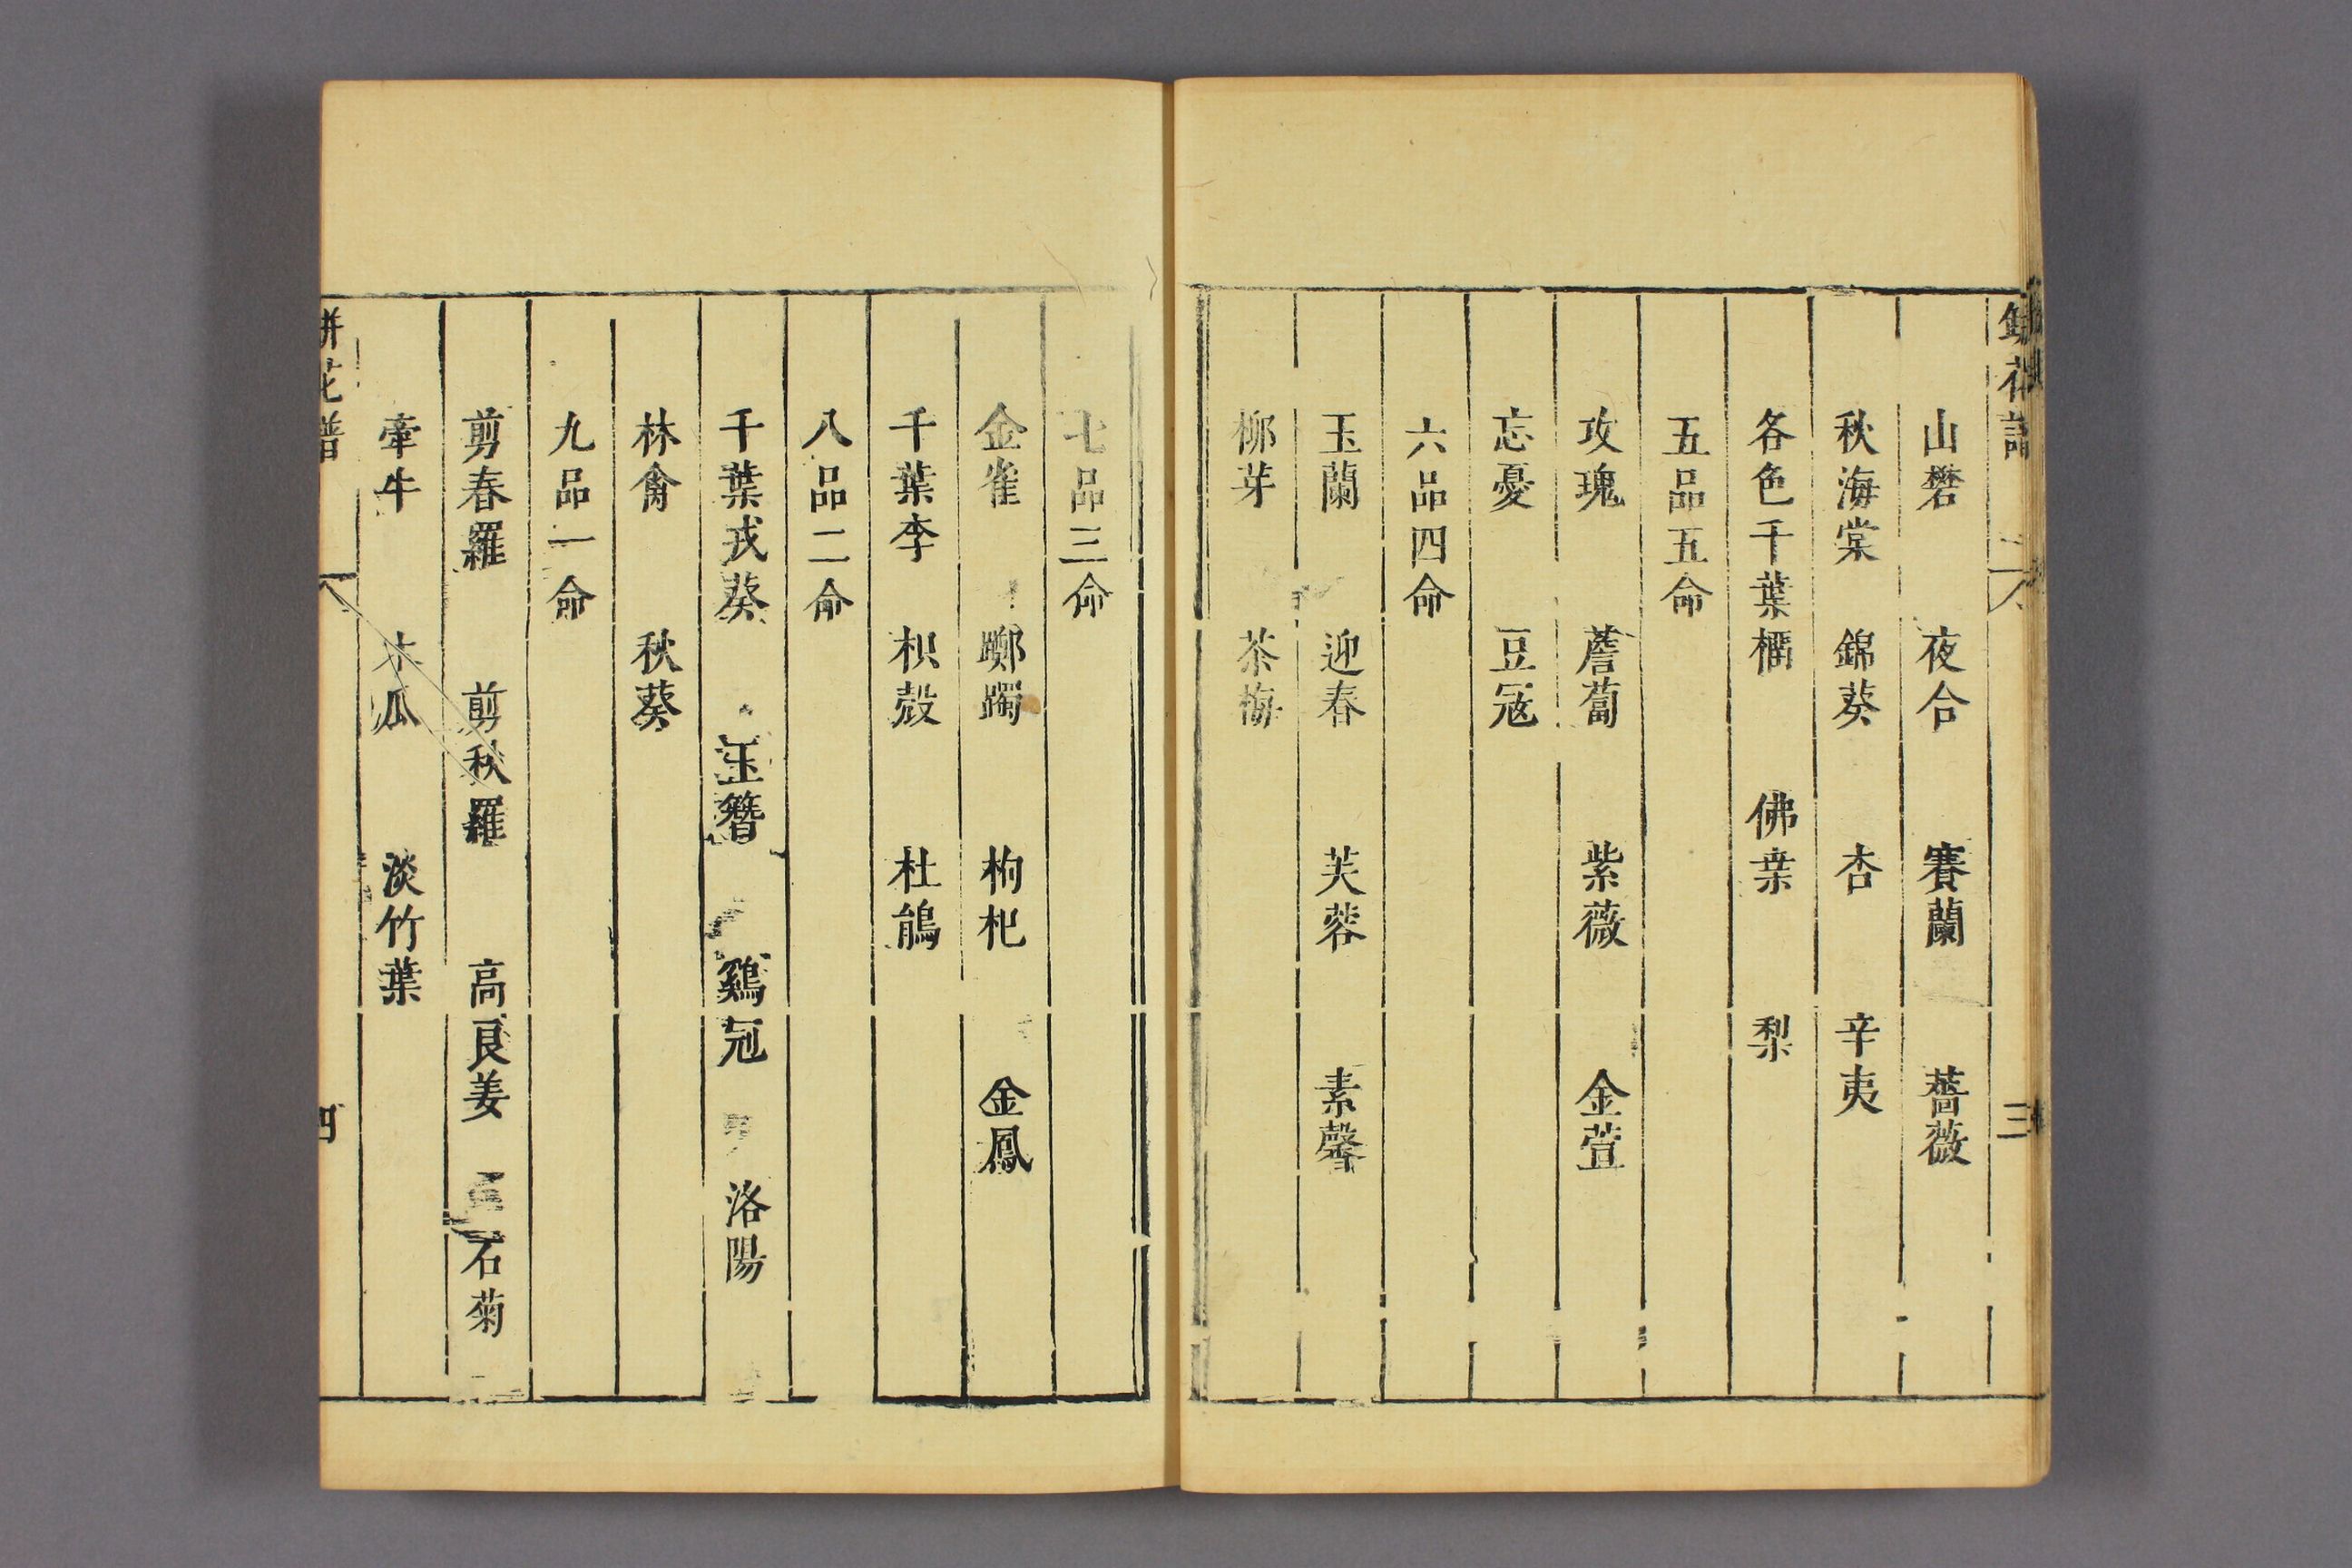 山礬 夜合 賽蘭 薔薇
秋海棠 錦葵 杏 辛夷
各色千葉榴 佛桒 梨
五品五命
攻瑰 薝蔔 紫薇 金萱
忘憂 豆寇
六品四命
玉蘭 迎春 芙蓉 素馨
柳芽 茶梅
三
七品三命
金雀 躑躅 枸杞 金鳳
千葉李 枳殼 杜鵑
八品二命
千葉戎葵 玉簪 鷄冠 洛陽
林禽 秋葵
九品一命
剪春羅 剪秋羅 高良姜 石菊
牽牛 木瓜 淡竹葉
缾花譜 四